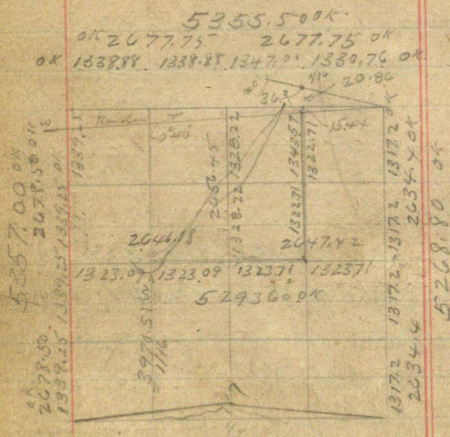 5355.50 OK
OK 2677.75 2677.75 OK
OK 1338.88 1338.88 1347.00 1330.76 OK
20.86
363
15.44
0°46
1339.25
2656.45
1328.22
1328.22
1343.57
1322.71
1322.71
2646.18
2647.42
1323.09 1323.09 1323.71 1323.71
5293.60 OK
5357.00 OK
2678.50 OK
1339.25 OK
1339.25
OK
2678.50
1339.25
1317.2
1317.2
1317.2
1317.2
2634.4 OK
2634.4
5268.80 OK
7